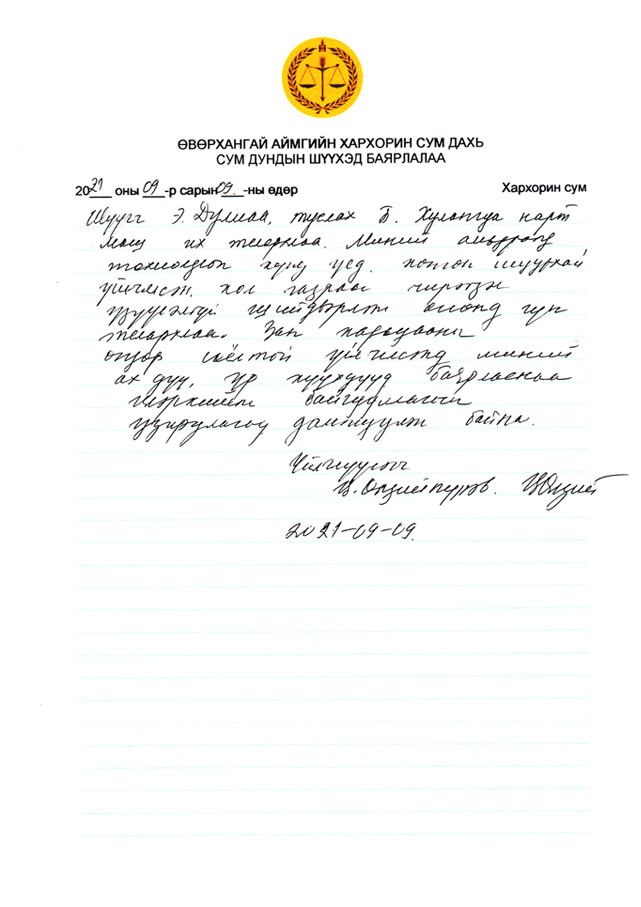 ӨВӨРХАНГАЙ АЙМГИЙН ХАРХОРИН СУМ ДАХЬ
СУМ ДУНДЫН ШҮҮХЭД БАЯРЛАЛАА
2021 оны 09-р сарын 09-ны өдөр Хархорин сум
Шүүгч Э. Дулмаа, туслах Б. Хулангуа нарт
маш их талархлаа. Миний амьдралд
тохиолдсон хүнд үед
үйлчилж, хол газраас чирэгдэл
үзүүлэлгүй шийдвэрлэж өгсөнд гүн
талархлаа. Зан
өндөр соёлтой үйлчилсэнд миний
ах дүү, үр хүүхдүүд баярласнаа
илэрхийлж байгууллагын
удирдлагад дамжуулж байна.
Үйлчлүүлэгч
2021-09-09.